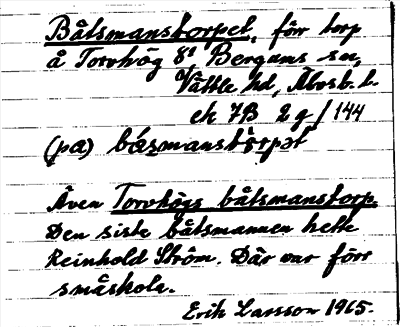 Båtsmanstorpet, förr torp
å Torvhög 8¹ Bergums sn,
Vättle hd, Älvsb. l.
ek 7B 2g/144
(pa) bɷ́smanstɷ̀rpət
Även Torvhögs båtsmanstorp.
Den siste båtsmannen hette
Reinhold Ström. Där var förr
småskola.
Erik Larsson 1965.